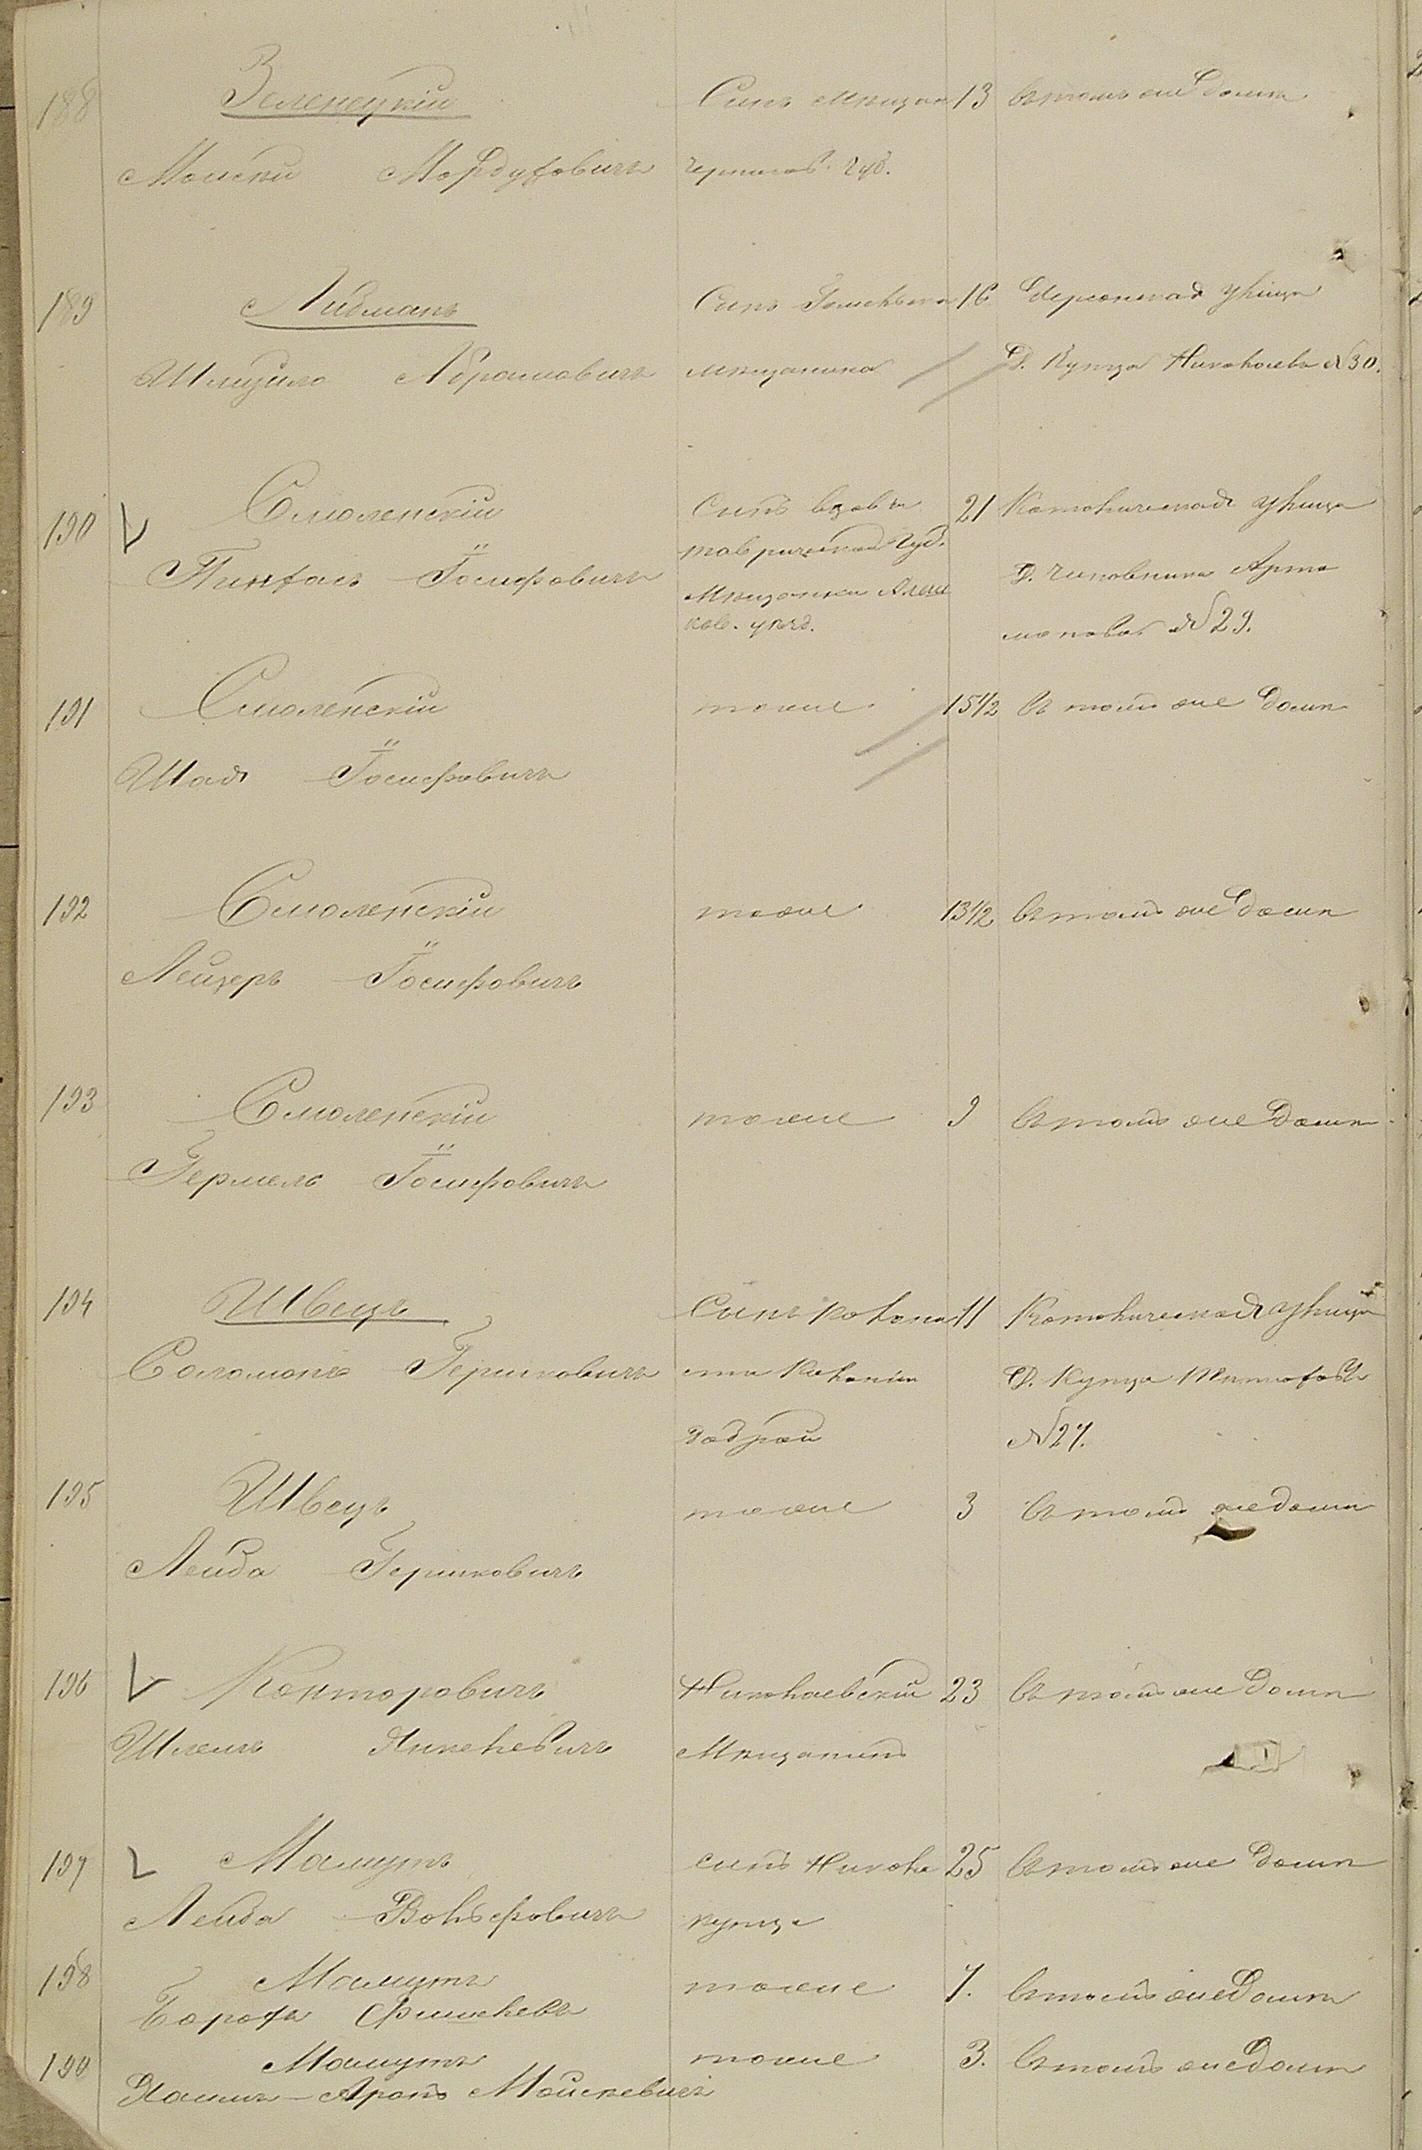 188 Зеленецкій Сынъ мѣщан 13 въ томъ же домѣ
Мойсей Мордуховичъ Чернигов. Губ.
189 Либманъ Сынъ 16 Херсонская улица
Шмуйло Абрамовичъ мѣщанина Д. Купца Николаева №30.
190 Смоленскій Сынъ вдовы 21 Католическая улица
Таврической Губ.
Пинхасъ Іосифовичъ Д. Чиновника Арта
Мѣщанки Алеш
ков. уѣзд. монова №29.
191 Смоленскій тоже 15 1/2 въ томъ же домѣ
Шая Іосифовичъ
192 Смоленскій тоже 13 1/2 въ томъ же домѣ
Лейзеръ Іосифовичъ
193 Смоленскій тоже 9 въ томъ же домѣ
Іосифовичъ
194 Швецъ Сынъ колони 11 Католическая улица
Соломонъ Гершковичъ ста Колоніи Д. Купца
Доброй №27.
195 Швецъ тоже 3 въ томъ же домѣ
Лейба Гершковичъ
196 Канторовичъ Николаевскій 23 въ томъ же домѣ
Шлема Янкелевичъ Мѣщанинъ
197 Мамутъ сынъ Никола 25 въ томъ же домѣ
Лейба Вольфовичъ купца
198 Мамутъ тоже 7. въ томъ же домѣ
Борохъ Фишелевъ
199 Мамутъ тоже 3. въ томъ же домѣ
Хаимъ-Аронъ Мойсеевичъ